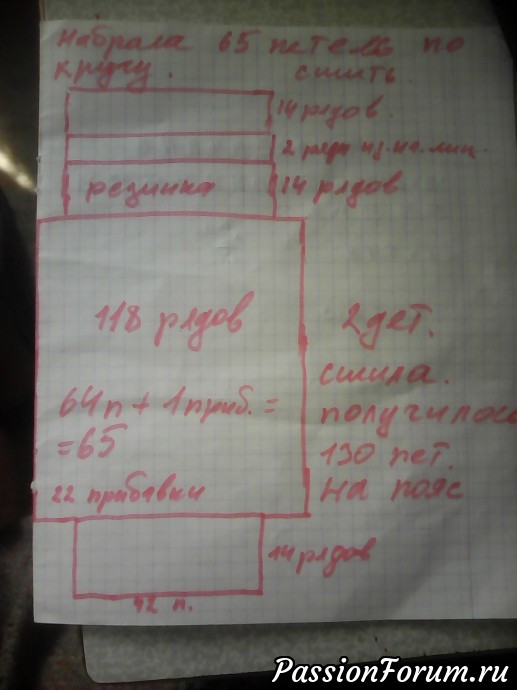 набрала 65 петель по
кругу. сшить
14 рядов.
2 ряда из.на.лиц.
резинка
14 рядов
118 рядов
2 дет.
сшила.
64п + 1 приб. =
получилось
= 65
130 пет.
22 прибавки
на пояс
14 рядов
42 п.
PassionForum.ru